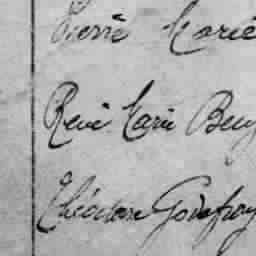 Pierre Marie
René Marie
Théodore Godefroy